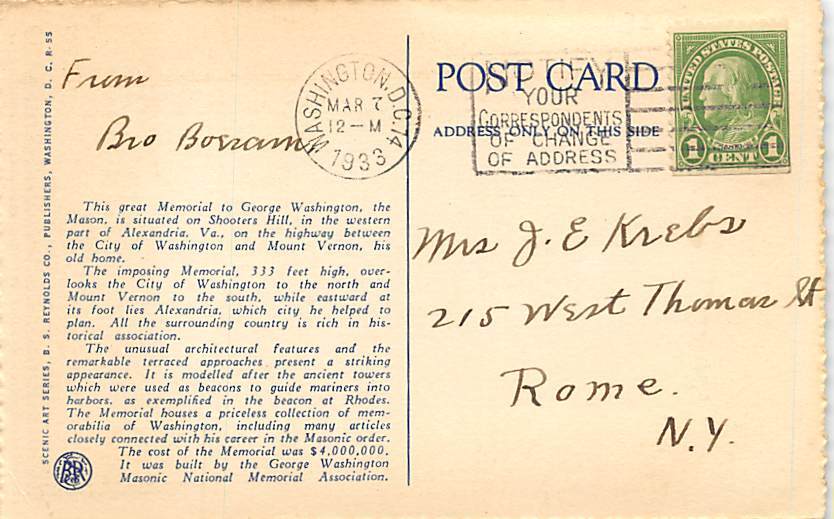 SCENIC ART SERIES, B. S. REYNOLDS CO., PUBLISHERS, WASHINGTON, D. C. R-55
From
Bro
WASHINGTON, D.C. 14
MAR 7
12-M
1933
NOTIFY
YOUR
CORRESPONDENTS
OF CHANGE
OF ADDRESS
POST CARD
ADDRESS ONLY ON THIS SIDE
UNITED STATES POSTAGE
1 CENT 1
This great Memorial to George Washington, the
Mason, is situated on Shooters Hill, in the western
part of Alexandria, Va., on the highway between
the City of Washington and Mount Vernon, his
old home.
The imposing Memorial, 333 feet high, over-
looks the City of Washington to the north and
Mount Vernon to the south, while eastward at
its foot lies Alexandria, which city he helped to
plan. All the surrounding country is rich in his-
torical association.
The unusual architectural features and the
remarkable terraced approaches present a striking
appearance. It is modelled after the ancient towers
which were used as beacons to guide mariners into
harbors, as exemplified in the beacon at Rhodes.
The Memorial houses a priceless collection of mem-
orabilia of Washington, including many articles
closely connected with his career in the Masonic order.
The cost of the Memorial was $4,000,000.
It was built by the George Washington
Masonic National Memorial Association.
Mrs J. E Krebs
215 West Thomas St
Rome.
N.Y.